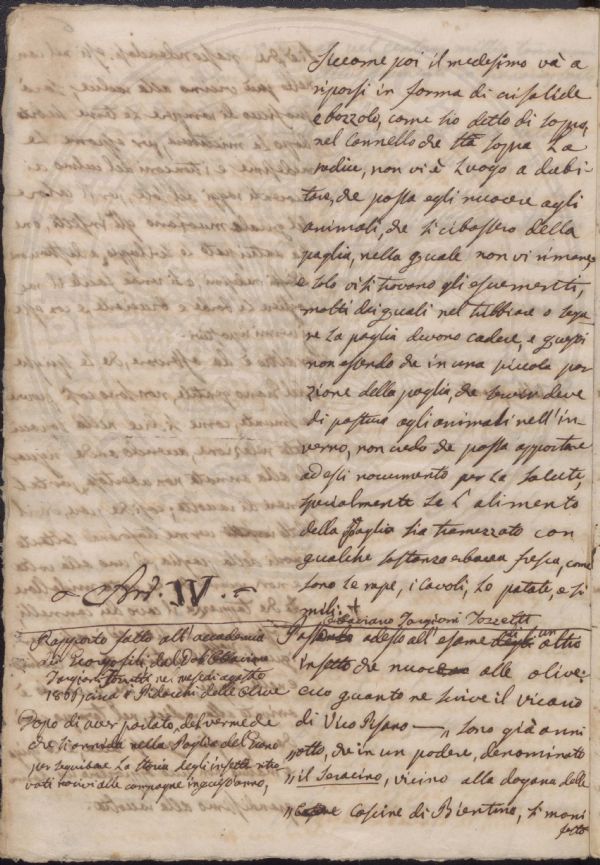 Siccome poi il medesimo và a
riporsi in forma di crisalide
e bozzolo, come hò detto di sopra,
nel Cannello che stà sopra La
radice, non vi è Luogo a dubi-
tare, che possa egli nuocere agli
animali, che si cibassero della
paglia, nella quale non vi rimane,
e solo vi si trovano gli escrementi,
molti dei quali nel tribbiare o sega-
re La paglia devono cadere, e questi
non essendo che in una piccola por-
zione della paglia, che servir deve
di pastura agli animali nell'in-
verno, non credo che possa apportare
ad essi nocumento per La Salute,
specialmente se L'alimento
della Paglia sia tramezzato con
qualche sostanza erbacea fresca, come
sono Le rape, i cavoli, Le patate, e si-
mili.
Art. IV.
Rapporto fatto all'accademia
dei Georgofili, dal Dott. Ottaviano
Targioni Tozzetti nei mesi di agosto
1806, circa i Pidocchi delle Olive
Dopo di aver parlato del verme
che si annida nella Paglia del Grano
per seguitare La storia degli insetti ritro-
vati nocivi alle campagne in quest'anno,
Ottaviano Targioni Tozzetti
adesso all'esame di un altro
insetto che nuoce alle olive:
ecco quanto ne scrive il vicario
di Vico Pisano — „ Sono già anni
„ otto, che in un podere, denominato
„ il Saracino, vicino alla dogana delle
„ Cascine di Bientina, si mani-
festò